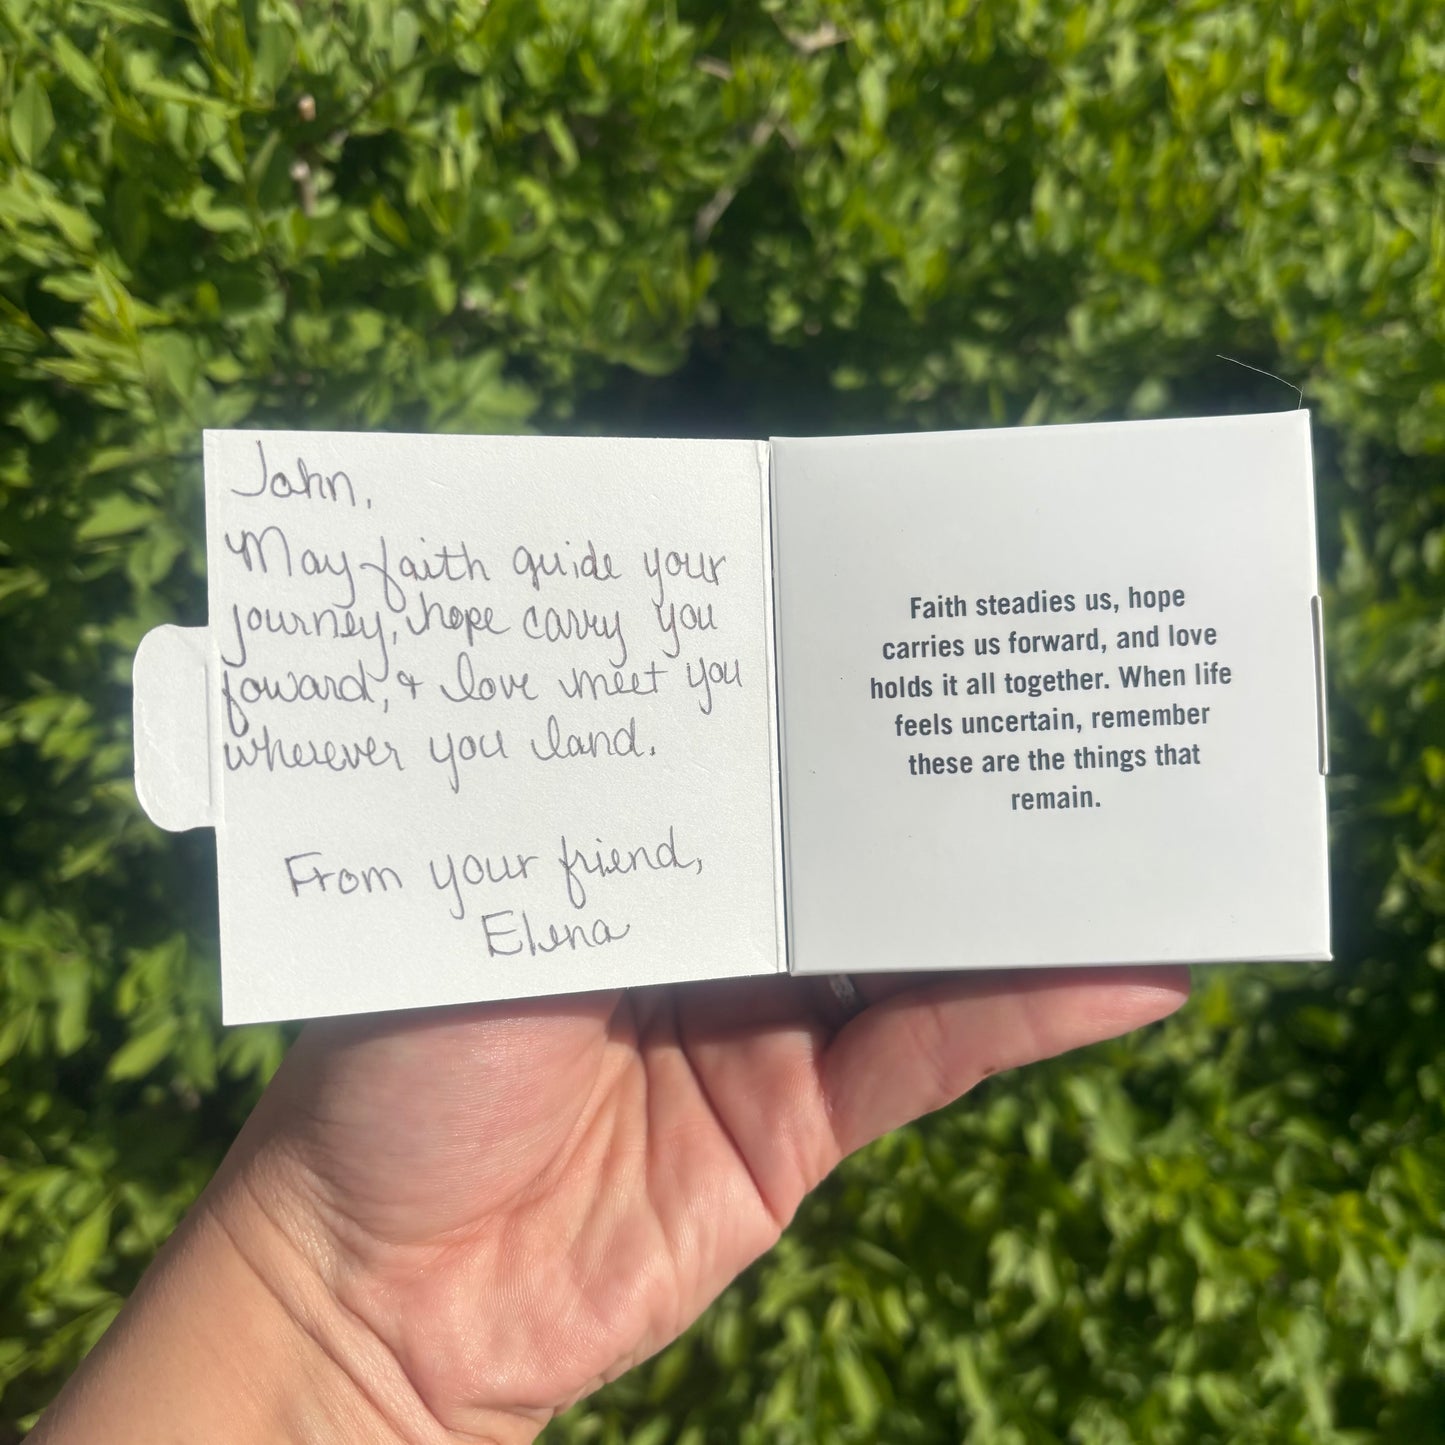 John,
May faith guide your
journey, hope carry you
foward, & love meet you
wherever you land.
From your friend,
Elena
Faith steadies us, hope
carries us forward, and love
holds it all together. When life
feels uncertain, remember
these are the things that
remain.